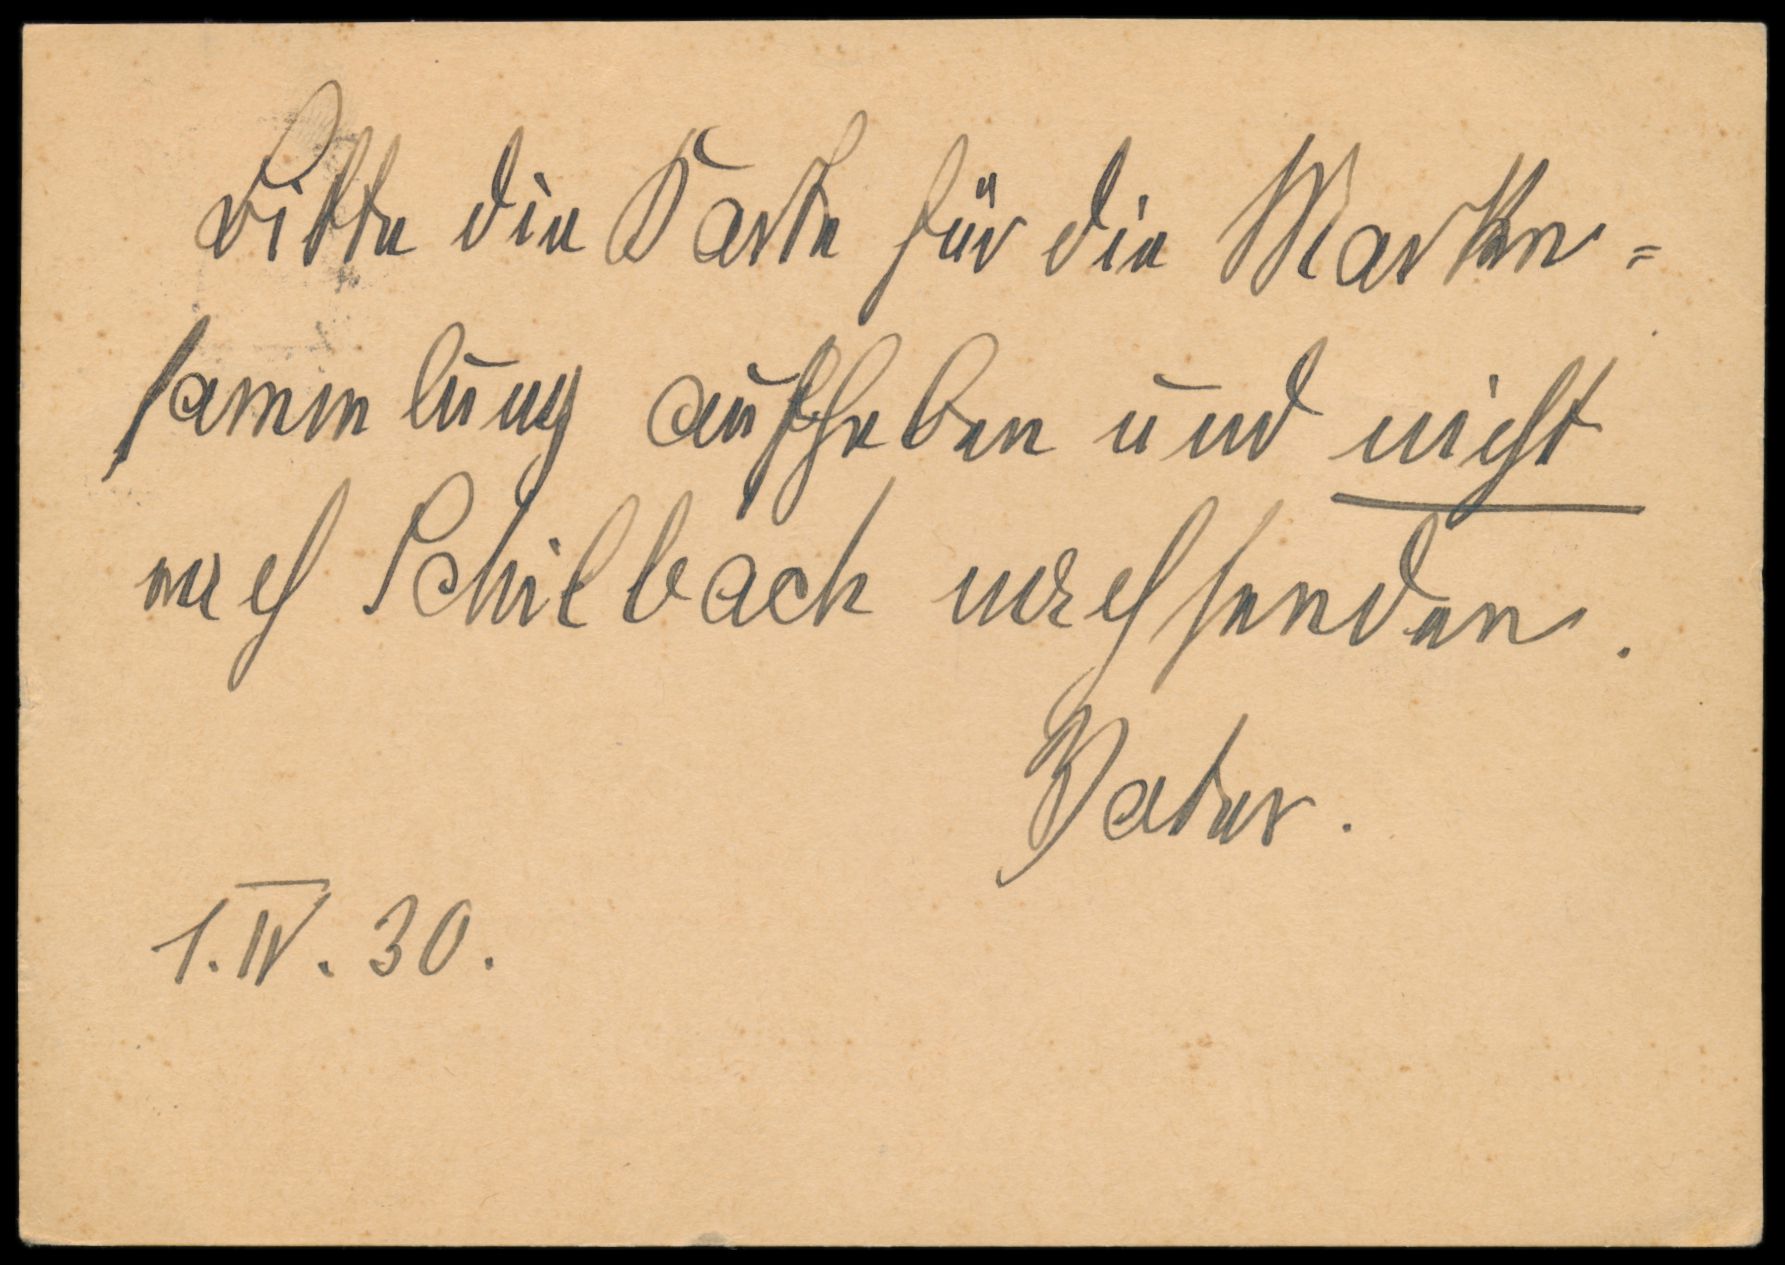 Bitte die Karte für die Marken=
sammlung aufheben und nicht
nach Schilbach nachsenden.
Vater.
1. IV. 30.